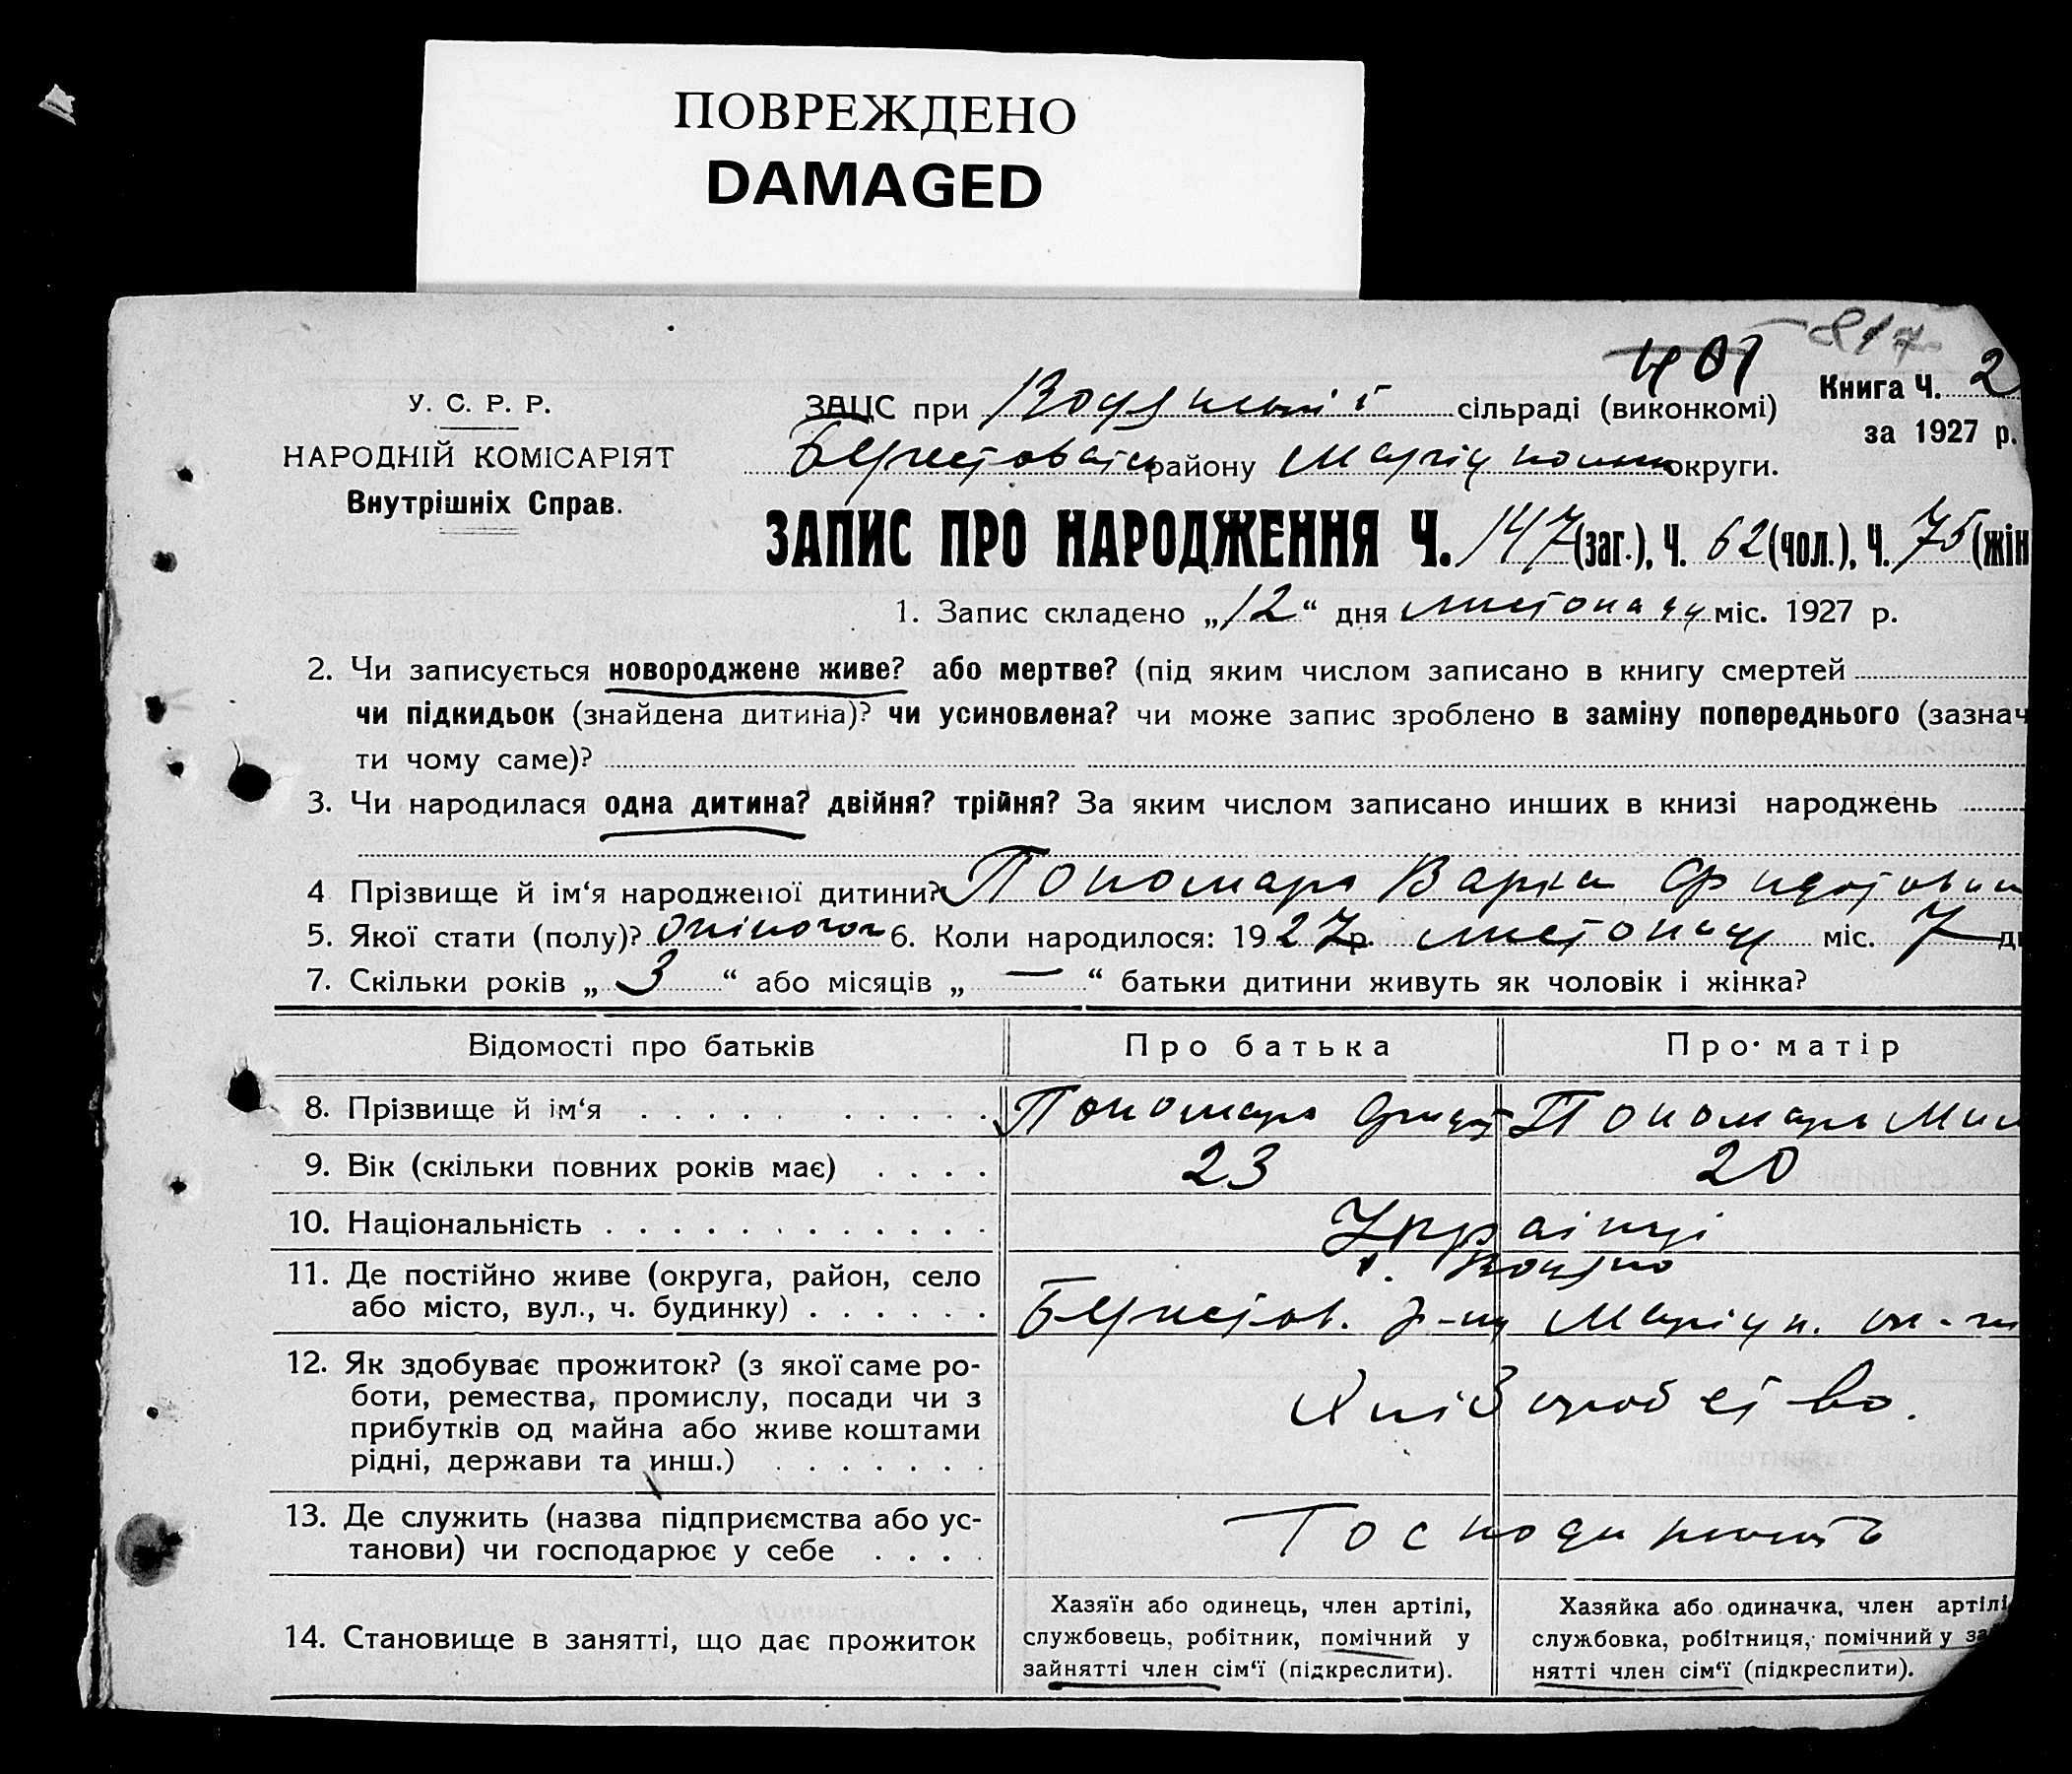 ПОВРЕЖДЕНО
DAMAGED
817
401
Книга Ч. 2
за 1927 р.
У. С. Р. Р.
НАРОДНІЙ КОМІСАРІЯТ
Внутрішніх Справ.
ЗАЦС при сільраді (виконкомі)
району округи.
ЗАПИС ПРО НАРОДЖЕННЯ Ч. 147 (заг.), Ч. 62 (чол.), Ч. 75 (жін
1. Запис складено „12“ дня листопаду міс. 1927 р.
2. Чи записується новороджене живе? або мертве? (під яким числом записано в книгу смертей
чи підкидьок (знайдена дитина)? чи усиновлена? чи може запис зроблено в заміну попереднього (зазнач
ти чому саме)?
3. Чи народилася одна дитина? двійня? трійня? За яким числом записано инших в книзі народжень
4 Прізвище й ім‘я народженої дитини? Пономарь Варка
5. Якої стати (полу)? 6. Коли народилося: 1927 р. листопаду міс. 7 д
7. Скільки років „3“ або місяців „—“ батьки дитини живуть як чоловік і жінка?
Відомості про батьків Про батька Про матір
8. Прізвище й ім‘я Пономарь Пономарь
9. Вік (скільки повних років має) 23 20
10. Національність Українці
11. Де постійно живе (округа, район, село
або місто, вул., ч. будинку) Берестов. р-ну Маріуп.
12. Як здобуває прожиток? (з якої саме ро-
боти, ремества, промислу, посади чи з
прибутків од майна або живе коштами
рідні, держави та инш.)
Хліборобство.
13. Де служить (назва підприємства або ус-
танови) чи господарює у себе
14. Становище в занятті, що дає прожиток
Хазяїн або одинець, член артілі,
службовець, робітник, помічний у
зайнятті член сім‘ї (підкреслити).
Хазяйка або одиначка, член артілі
службовка, робітниця, помічний у за
нятті член сім‘ї (підкреслити).